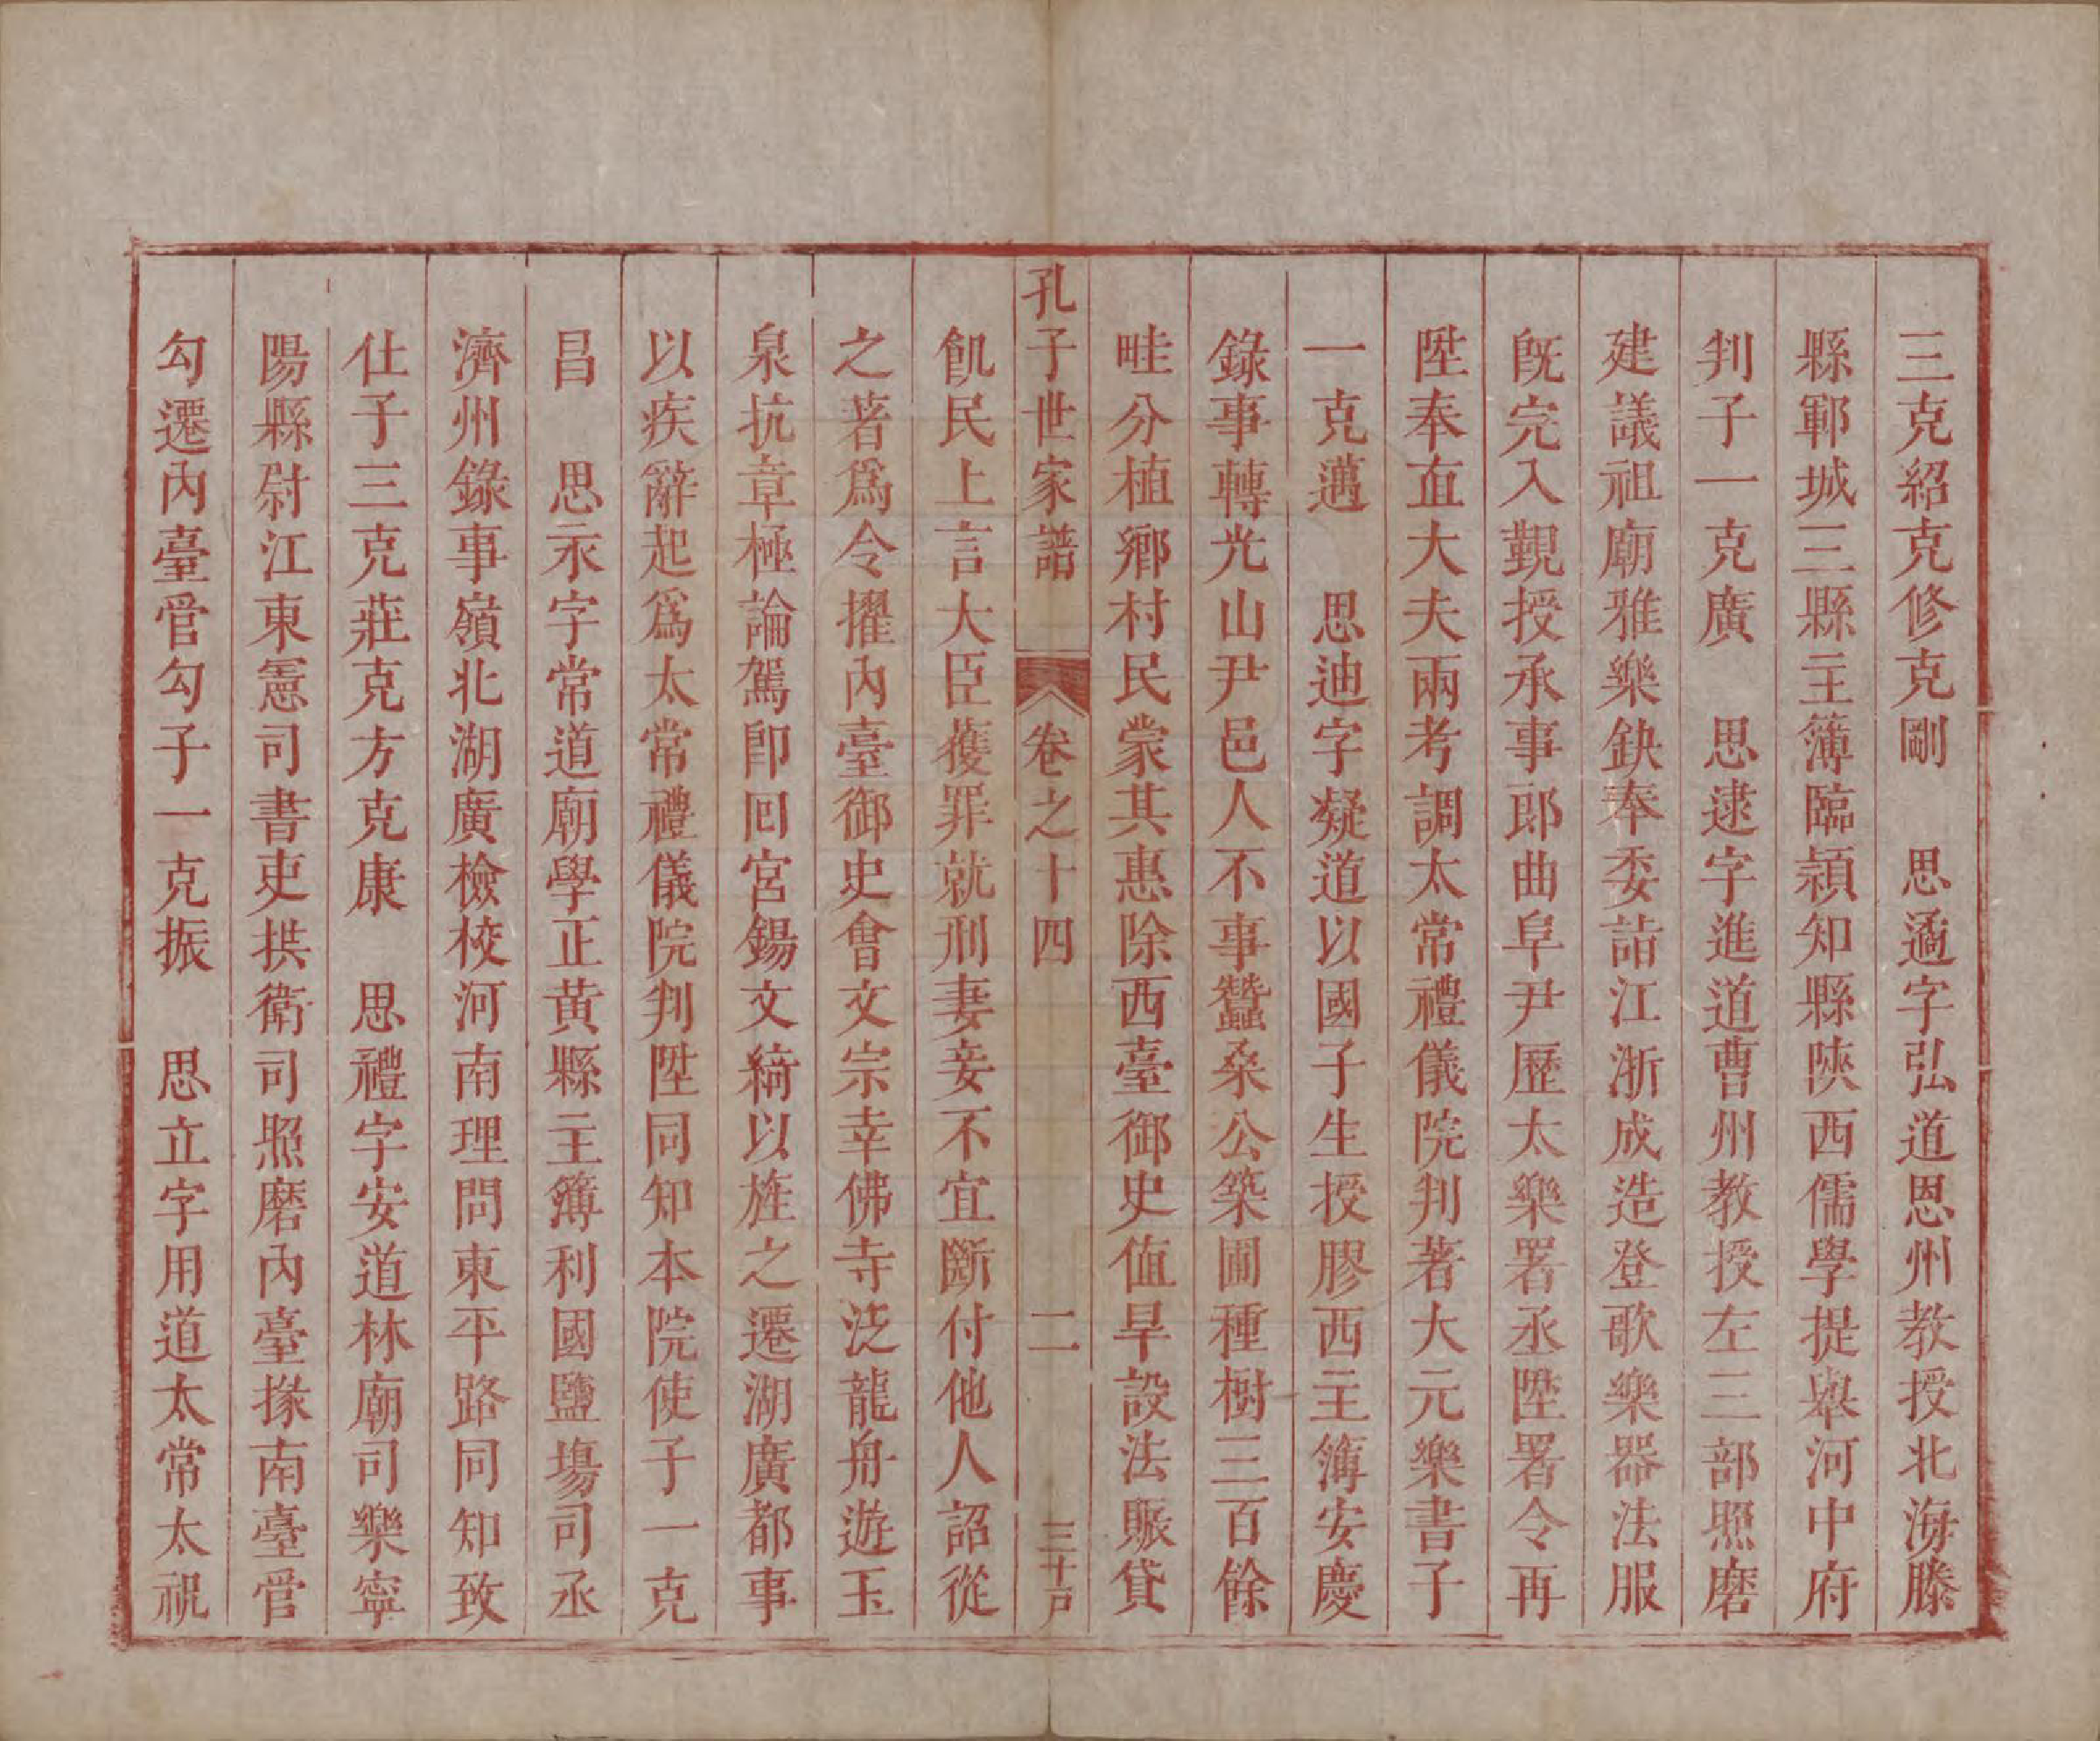 三克紹克修克剛　思遹字弘道恩州教授北海滕
縣鄆城三縣主簿臨潁知縣陝西儒學提舉河中府
判子一克廣　思逮字進道曹州教授左三部照磨
建議祖廟雅樂缺奉委詣江浙成造登歌樂器法服
既完入覲授承事郎曲阜尹歷太樂署丞陞署令再
陞奉直大夫兩考調太常禮儀院判著大元樂書子
一克邁　思迪字凝道以國子生授膠西主簿安慶
錄事轉光山尹邑人不事蠶桑公築圃種樹三百餘
畦分植鄉村民蒙其惠除西臺御史值旱設法賑貸
孔子世家譜　卷之十四　二　三十戶
飢民上言大臣獲罪就刑妻妾不宜斷付他人詔從
之著爲令擢內臺御史會文宗幸佛寺泛龍舟遊玉
泉抗章極論駕即回宮錫文綺以旌之遷湖廣都事
以疾辭起爲太常禮儀院判陞同知本院使子一克
昌　思永字常道廟學正黃縣主簿利國鹽場司丞
濟州錄事嶺北湖廣檢校河南理問東平路同知致
仕子三克莊克方克康　思禮字安道林廟司樂寧
陽縣尉江東憲司書吏拱衛司照磨內臺掾南臺管
勾遷內臺管勾子一克振　思立字用道太常太祝